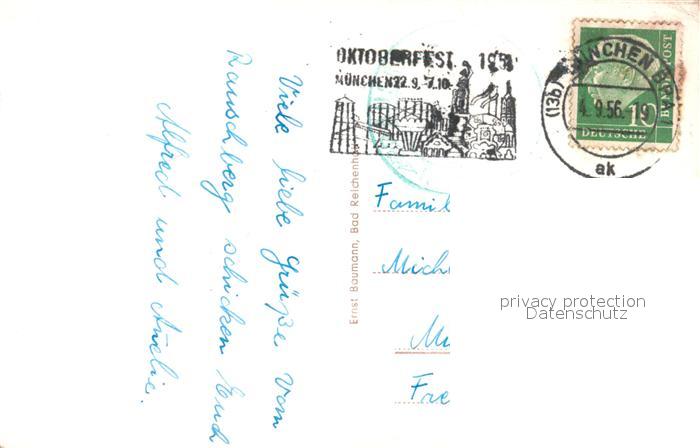 Viele liebe Grüße vom
Rauschberg schicken Euch
Alfred und Amelie.
Ernst Baumann, Bad Reichenha
OKTOBERFEST 195
MÜNCHEN 22.9.-7.10.
(13b) MÜNCHEN
4.9.56.
ak
10
DEUTSCHE
POST
Famil
Mich
Mü
Fre
privacy protection
Datenschutz